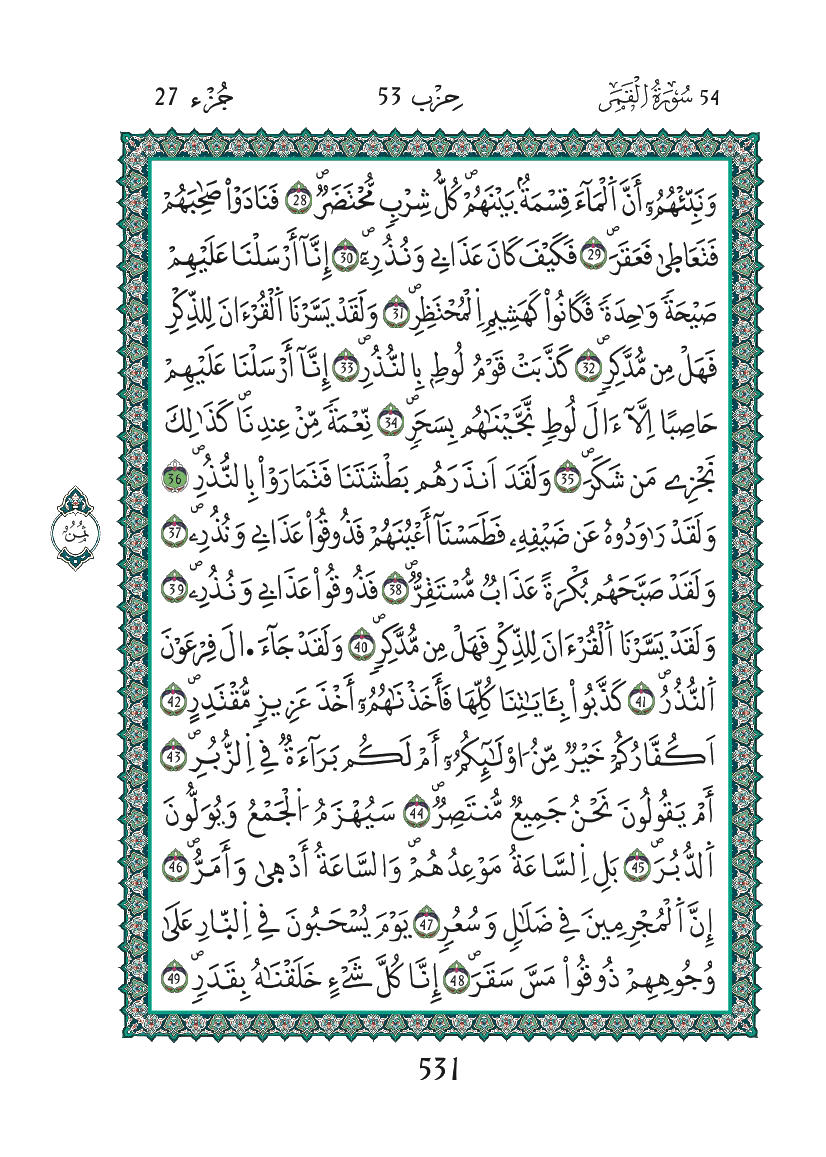 54 سُورَةُ الْقَمَرِ حِزْب 53 جُزْء 27
وَنَبِّئْهُمُۥٓ أَنَّ اَ۬لْمَآءَ قِسْمَةُۢ بَيْنَهُمْۖ كُلُّ شِرْبٖ مُّحْتَضَرٞۖ 28 فَنَادَوْاْ صَٰحِبَهُمْ
فَتَعَاط۪يٰ فَعَقَرَۖ 29 فَكَيْفَ كَانَ عَذَابِے وَنُذُرِۦٓۖ 30 إِنَّآ أَرْسَلْنَا عَلَيْهِمْ
صَيْحَةٗ وَٰحِدَةٗ فَكَانُواْ كَهَشِيمِ اِ۬لْمُحْتَظِرِۖ 31 وَلَقَدْ يَسَّرْنَا اَ۬لْقُرْءَانَ لِلذِّكْرِ
فَهَلْ مِن مُّدَّكِرٖۖ 32 كَذَّبَتْ قَوْمُ لُوطِۢ بِالنُّذُرِۖ 33 إِنَّآ أَرْسَلْنَا عَلَيْهِمْ
حَاصِبًا اِلَّآ ءَالَ لُوطٖ نَّجَّيْنَٰهُم بِسَحَرٖۖ 34 نِّعْمَةٗ مِّنْ عِندِنَاۖ كَذَٰلِكَ
نَجْزِے مَن شَكَرَۖ 35 وَلَقَدَ اَنذَرَهُم بَطْشَتَنَا فَتَمَارَوْاْ بِالنُّذُرِۖ 36
وَلَقَدْ رَٰوَدُوهُ عَن ضَيْفِهِۦ فَطَمَسْنَآ أَعْيُنَهُمْ فَذُوقُواْ عَذَابِے وَنُذُرِۦۖ 37
وَلَقَدْ صَبَّحَهُم بُكْرَةً عَذَابٞ مُّسْتَقِرّٞۖ 38 فَذُوقُواْ عَذَابِے وَنُذُرِۦۖ 39
وَلَقَدْ يَسَّرْنَا اَ۬لْقُرْءَانَ لِلذِّكْرِ فَهَلْ مِن مُّدَّكِرٖۖ 40 وَلَقَدْ جَآءَ اٰ۬لَ فِرْعَوْنَ
اَ۬لنُّذُرُۖ 41 كَذَّبُواْ بِـَٔايَٰتِنَا كُلِّهَا فَأَخَذْنَٰهُمُۥٓ أَخْذَ عَزِيزٖ مُّقْتَدِرٍۖ 42
اَكُفَّارُكُمْ خَيْرٞ مِّنُ ا۟وْلَٰٓئِكُمُۥٓ أَمْ لَكُم بَرَآءَةٞ فِے اِ۬لزُّبُرِۖ 43
أَمْ يَقُولُونَ نَحْنُ جَمِيعٞ مُّنتَصِرٞۖ 44 سَيُهْزَمُ اُ۬لْجَمْعُ وَيُوَلُّونَ
اَ۬لدُّبُرَۖ 45 بَلِ اِ۬لسَّاعَةُ مَوْعِدُهُمْۖ وَالسَّاعَةُ أَدْه۪يٰ وَأَمَرُّۖ 46
إِنَّ اَ۬لْمُجْرِمِينَ فِے ضَلَٰلٖ وَسُعُرٖۖ 47 يَوْمَ يُسْحَبُونَ فِے اِ۬لنّ۪ارِ عَلَىٰ
وُجُوهِهِمْ ذُوقُواْ مَسَّ سَقَرَۖ 48 إِنَّا كُلَّ شَےْءٍ خَلَقْنَٰهُ بِقَدَرٖۖ 49
ثُمُن
531